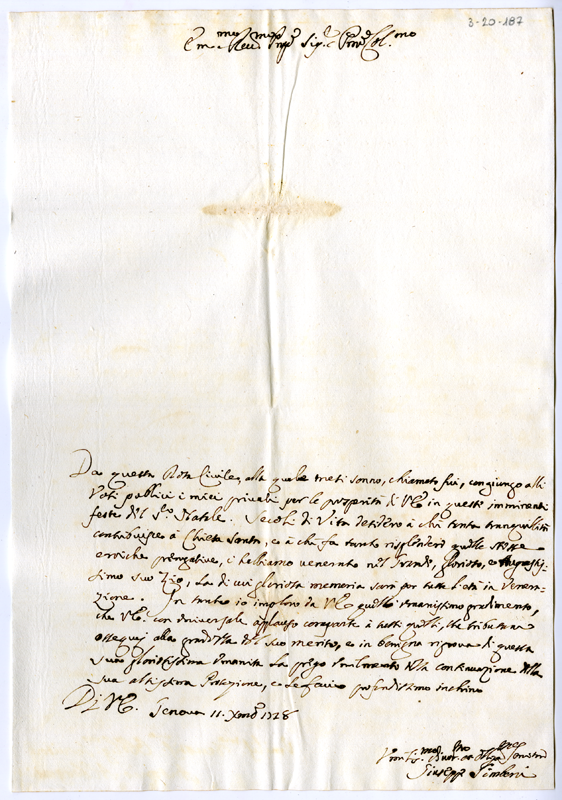 3-20-187
Em.mo e Rev.mo Sig.r Sig.r e Pron Col.mo
Da questa Rota Civile, alla quale mesi sonno, chiamato fui, congiungo alli
Voti publici i miei privati per le prosperità di VE in questi imminenti
feste del S.mo Natale. Secoli di Vita desidero à chi tanta tranquillità
contribuisce à Chiesa Santa, e à chi fa tanto risplendere quelle stesse
eroiche prerogative, che habbiamo venerato nel Grande, glorioso, e
simo suo Zio, la di cui gloriosa memoria sarà per tutte l'età in Venera-
zione. In tanto io imploro da VE quello umanissimo gradimento,
che VE con universale applauso comparte à tutti quelli, che tributano
ossequij alla grandezza del suo merito, e in benigna riprova di questa
sua gloriosissima Umanità La prego umilmente della continuazione della
sua altissima Protezione, e Le faccio profondissimo inchino
Di VE. Genova 11. Xmbre 1728
Giuseppe